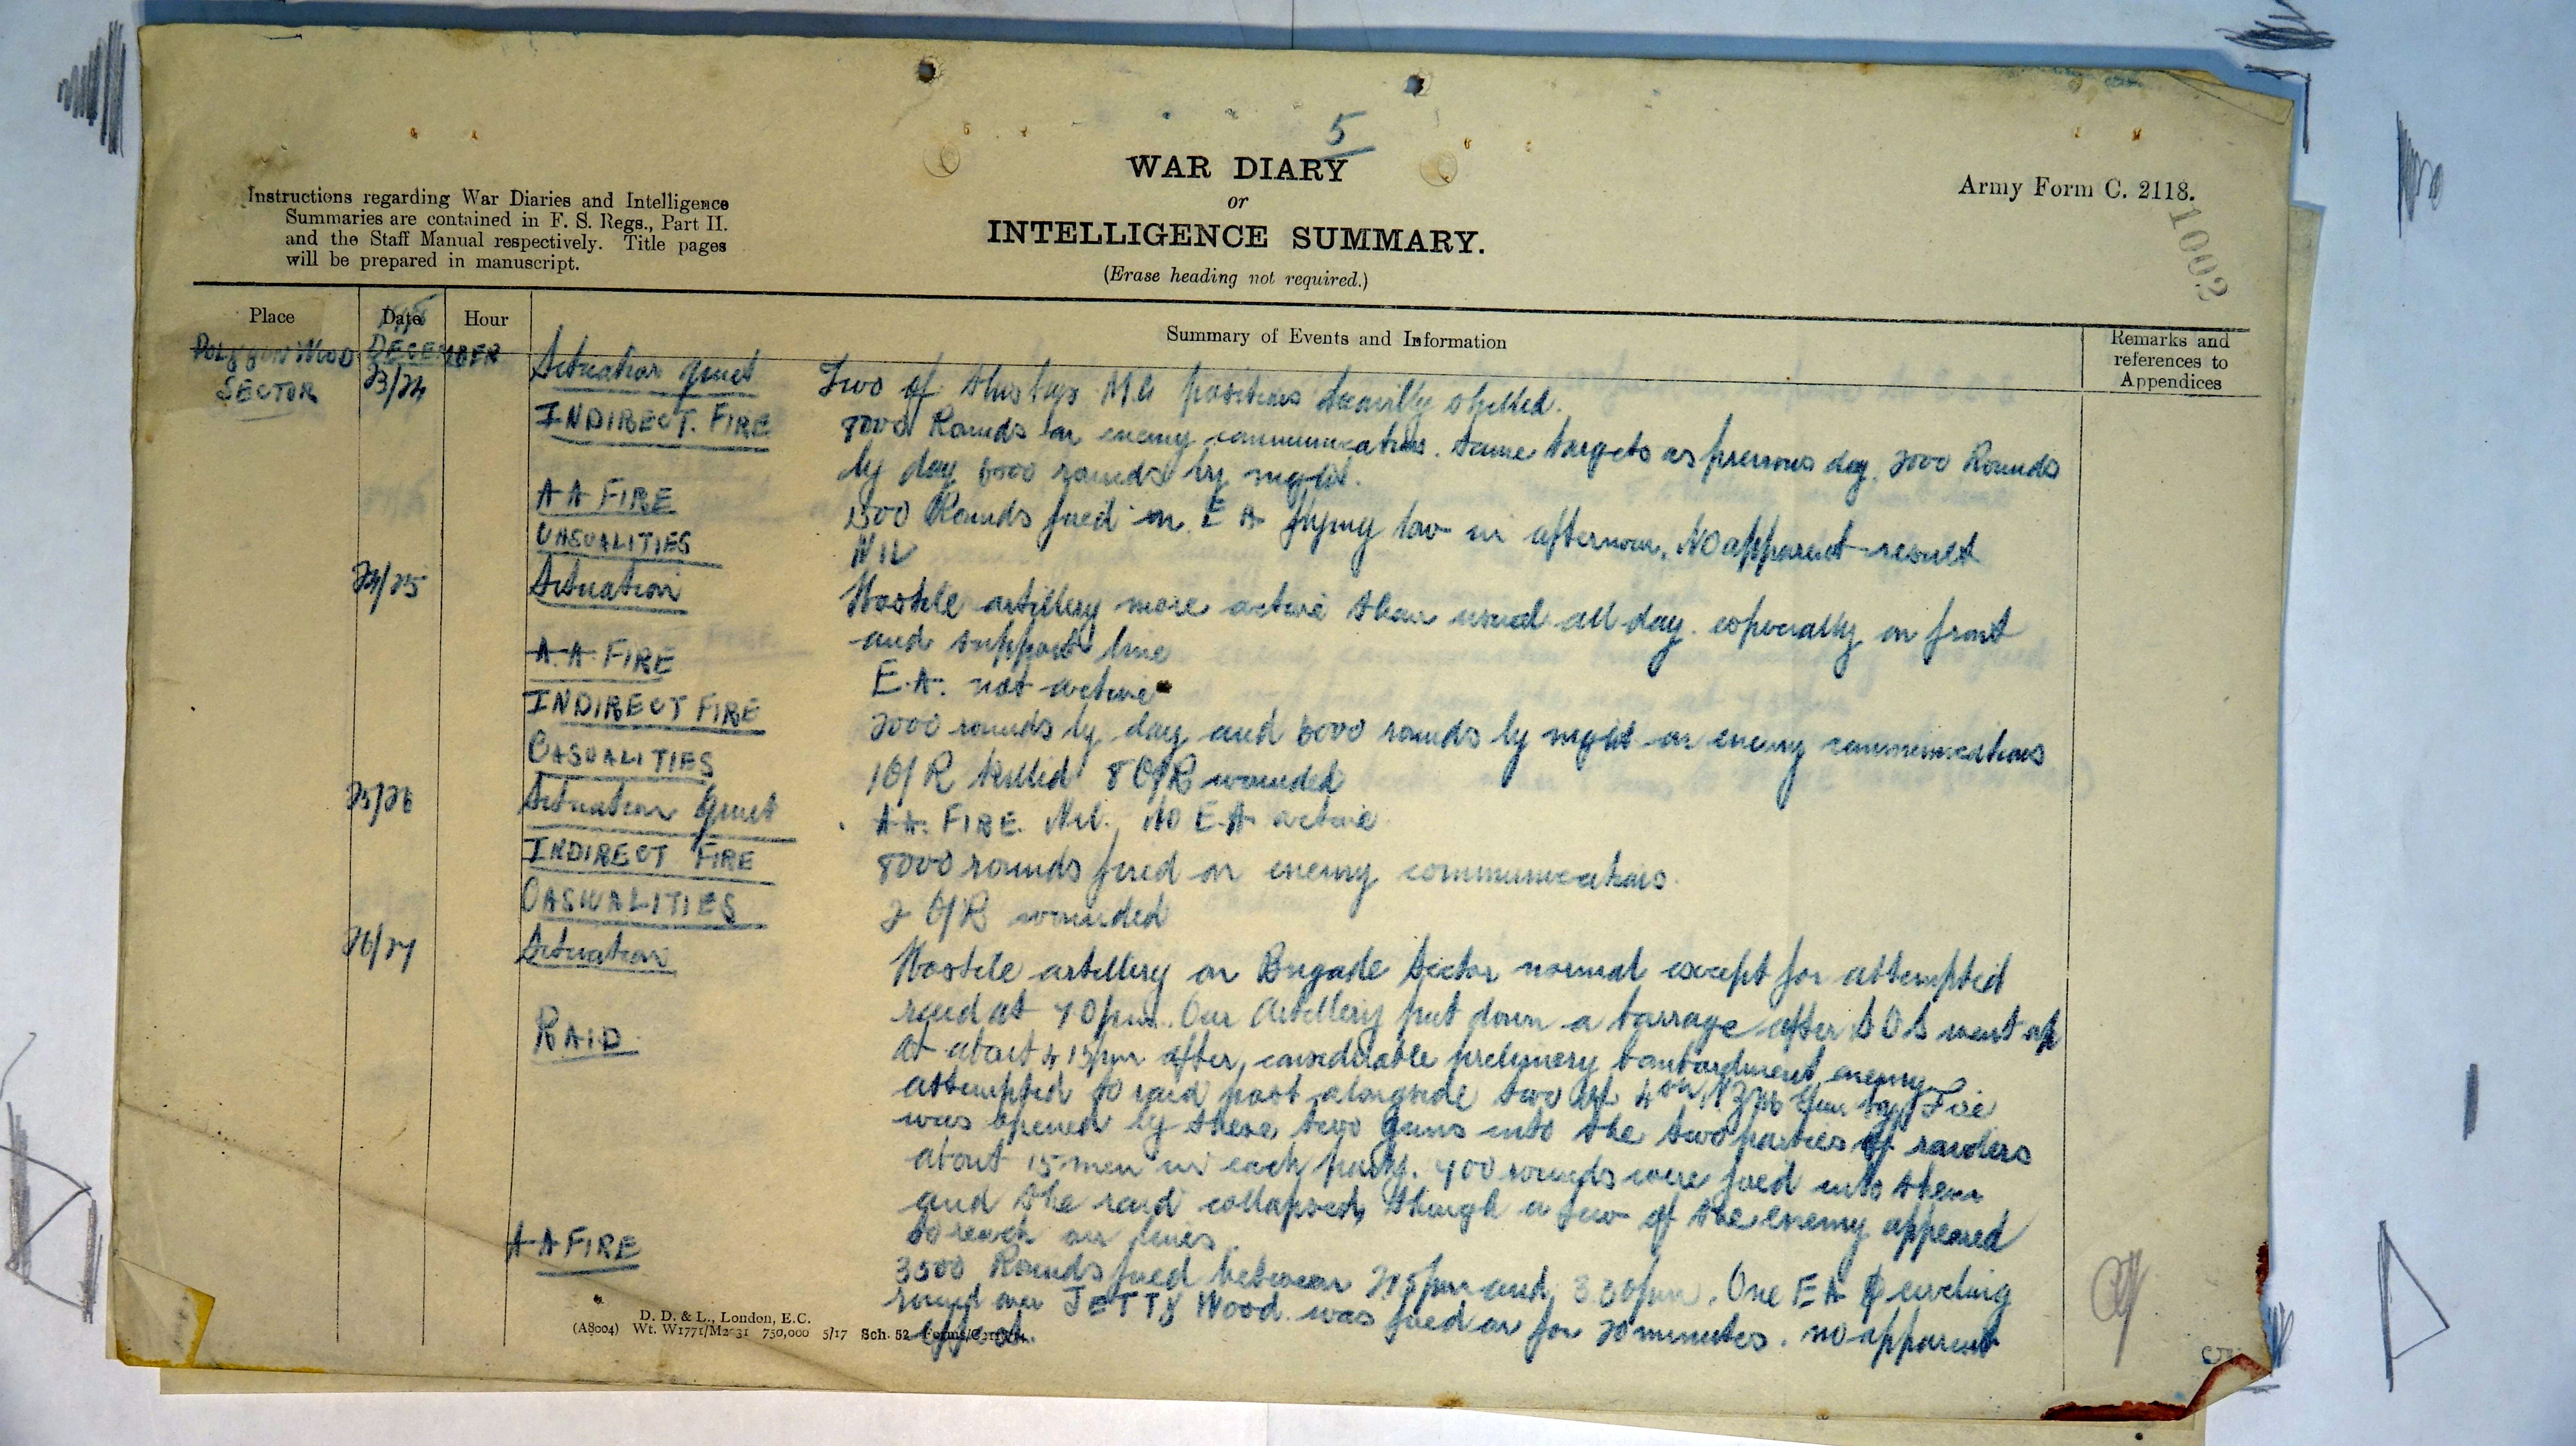 5
WAR DIARY
or
INTELLIGENCE SUMMARY.
(Erase heading not required.)
Army Form C. 2118.
1002
Instructions regarding War Diaries and Intelligence
Summaries are contained in F. S. Regs., Part II.
and the Staff Manual respectively. Title pages
will be prepared in manuscript.
Place Date Hour Summary of Events and Information Remarks and
references to
Appendices
POLYGON WOOD DECEMBER
SECTOR 23/24 Situation quiet Two of this M.G positions heavily shelled.
INDIRECT. FIRE 8000 Rounds on enemy communications. Same targets as previous day. 2000 Rounds
by day 6000 rounds by night.
A A FIRE 1500 Rounds fired on E A flying low in afternoon. No apparent result
CASUALITIES NIL
24/25 Situation Hostile artillery more active than usual all day. especially on front
and support line
A.A. FIRE E.A. not active
INDIRECT FIRE 2000 rounds by day and 6000 rounds by night on enemy communications
CASUALITIES 1 O/R killed 8 O/R wounded
25/26 Situation Quiet A.A. FIRE. Nil. No E.A. active
INDIRECT FIRE 8000 rounds fired on enemy communications.
CASUALITIES 2 O/R wounded
26/27 Situation Hostile artillery on Brigade Sector normal except for attempted
raid at pm. Our Artillery put down a barrage after S O S went up
RAID. At about 4 15pm after, considerable prelimery bombardment enemy
attempted to raid post alongside two of 4th NZ M G Fire
was opened by these two guns into the two parties of raiders
about 15 men in each party. 400 rounds were fired into them
and the raid collapsed, though a few of the enemy appeared
to reach our lines.
A A FIRE 3500 Rounds fired between 215pm and 3.30pm. One E A circling
round over JETTY Wood was fired on for 20 minutes. no apparent
effect.
D. D. & L., London, E.C.
(A8004) Wt. W1771/M2031 750,000 5/17 Sch. 52 Forms/C2118/14